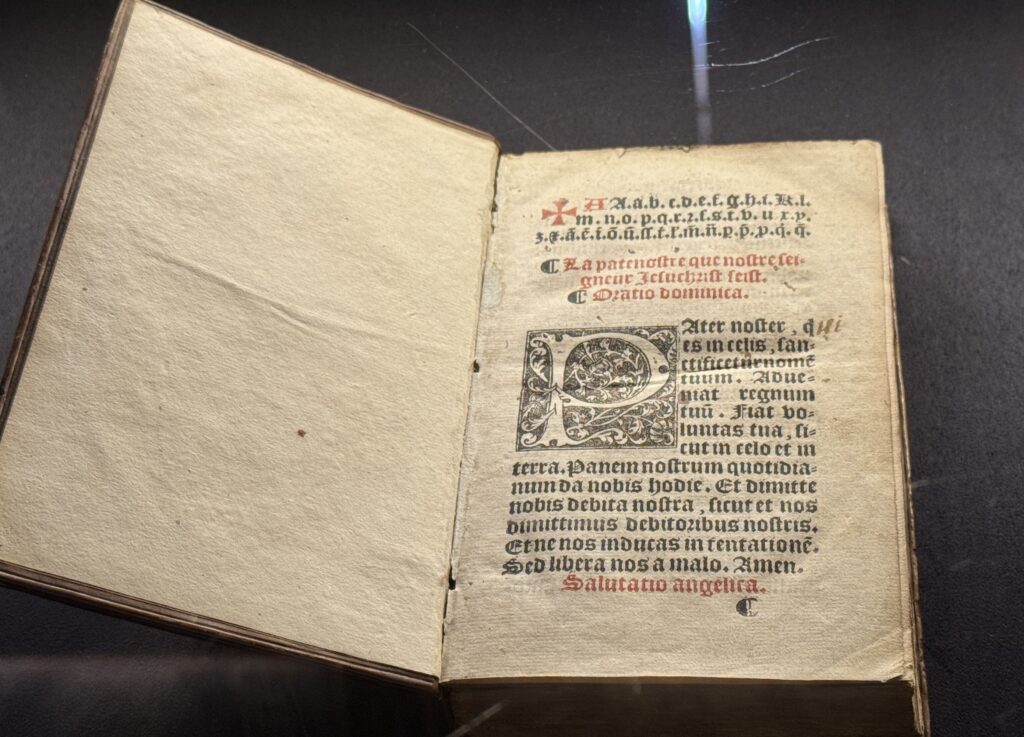 ✠ A A.a.b.c.d.e.f.g.h.i.k.l.
m.n.o.p.q.r.ꝛ.ſ.s.t.v.u.x.y.
ã.ẽ.ĩ.õ.ũ.
¶ La patenoſtre que noſtre ſei⸗
gneur Jeſuchriſt feiſt.
¶ Oratio dominica.
PAter noſter, qui
es in celis, ſan⸗
ctificetur nomẽ
tuum. Adue⸗
niat regnum
tuũ. Fiat vo⸗
luntas tua, ſi⸗
cut in celo et in
terra. Panem noſtrum quotidia⸗
num da nobis hodie. Et dimitte
nobis debita noſtra, ſicut et nos
dimittimus debitoribus noſtris.
Et ne nos inducas in tentationẽ.
Sed libera nos a malo. Amen.
Salutatio angelica.
¶